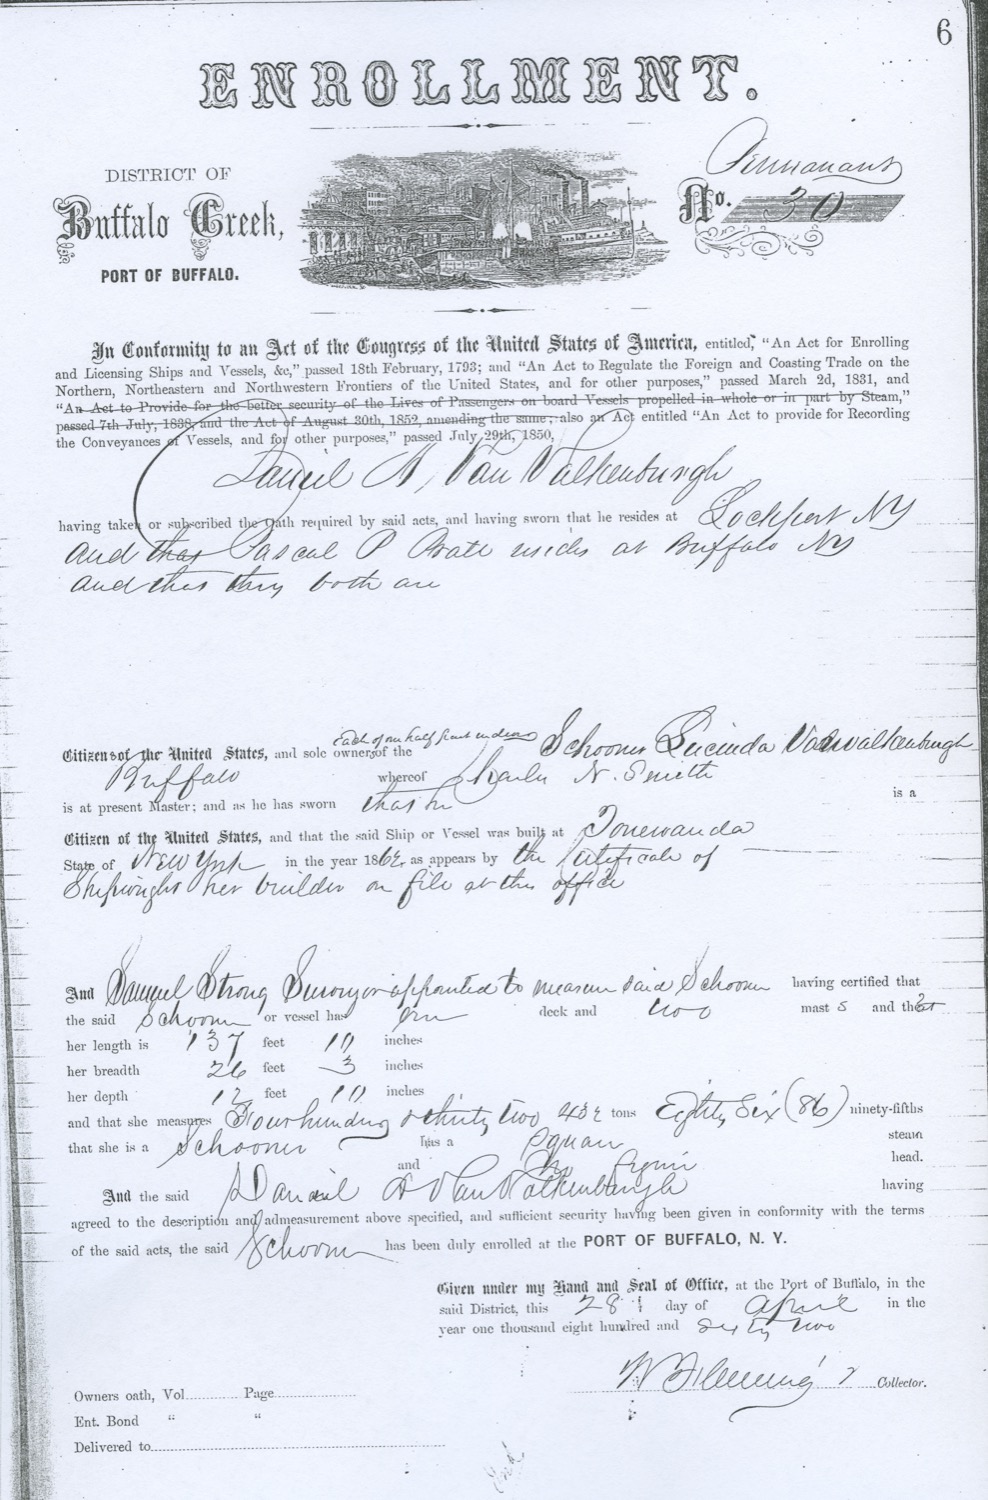 6
ENROLLMENT.
DISTRICT OF
Buffalo Creek,
PORT OF BUFFALO.
Permanant
No. 30
In Conformity to an Act of the Congress of the United States of America, entitled, "An Act for Enrolling
and Licensing Ships and Vessels, &c," passed 18th February, 1793; and "An Act to Regulate the Foreign and Coasting Trade on the
Northern, Northeastern and Northwestern Frontiers of the United States, and for other purposes," passed March 2d, 1831, and
"An Act to Provide for the better security of the Lives of Passengers on board Vessels propelled in whole or in part by Steam,"
passed 7th July, 1838, and the Act of August 30th, 1852, amending the same; also an Act entitled "An Act to provide for Recording
the Conveyances of Vessels, and for other purposes," passed July 29th, 1850,
Daniel A, Van Valkenburgh
having taken or subscribed the Oath required by said acts, and having sworn that he resides at Lockport NY
and that Pascal P Pratt resides at Buffalo NY
and that they both are
Citizens of the United States, and sole owners each of one half of the Schooner Lucinda Van Valkenburgh
Buffalo whereof Charles N. Smith
is at present Master; and as he has sworn that he is a
Citizen of the United States, and that the said Ship or Vessel was built at Tonewanda
State of New York in the year 1862, as appears by the Certificate of
Shipwright her builder on file at this office
And Samuel Strong Surveyor appointed to measure said Schooner having certified that
the said Schooner or vessel has one deck and two mast s and that
her length is 137 feet 10 inches
her breadth 26 feet 3 inches
her depth 12 feet 10 inches
and that she measures Four hundred & thirty two 432 tons Eighty Six (86) ninety-fifths
that she is a Schooner has a Square steam
and No Figure head.
And the said Daniel A Van Valkenburgh having
agreed to the description and admeasurement above specified, and sufficient security having been given in conformity with the terms
of the said acts, the said Schooner has been duly enrolled at the PORT OF BUFFALO, N. Y.
Given under my Hand and Seal of Office, at the Port of Buffalo, in the
said District, this 28 day of April in the
year one thousand eight hundred and sixty two
Collector.
Owners oath, Vol. Page
Ent. Bond " "
Delivered to